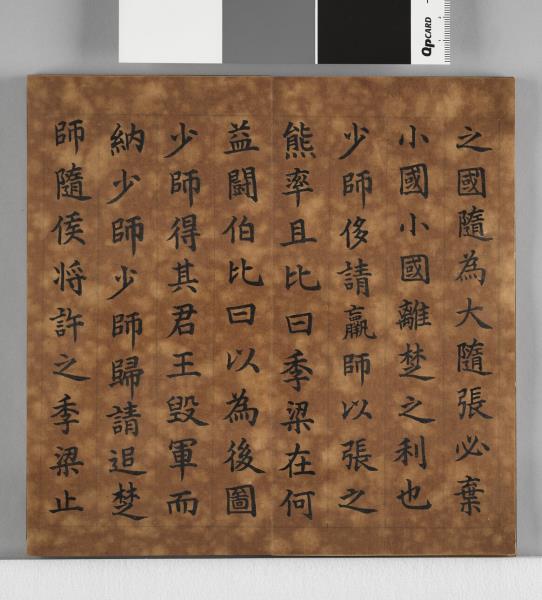 之國隨為大隨張必棄
小國小國離楚之利也
少師侈請羸師以張之
熊率且比曰季梁在何
益闘伯比曰以為後圖
少師得其君王毀軍而
納少師少師歸請追楚
師隨侯将許之季梁止
QpCARD